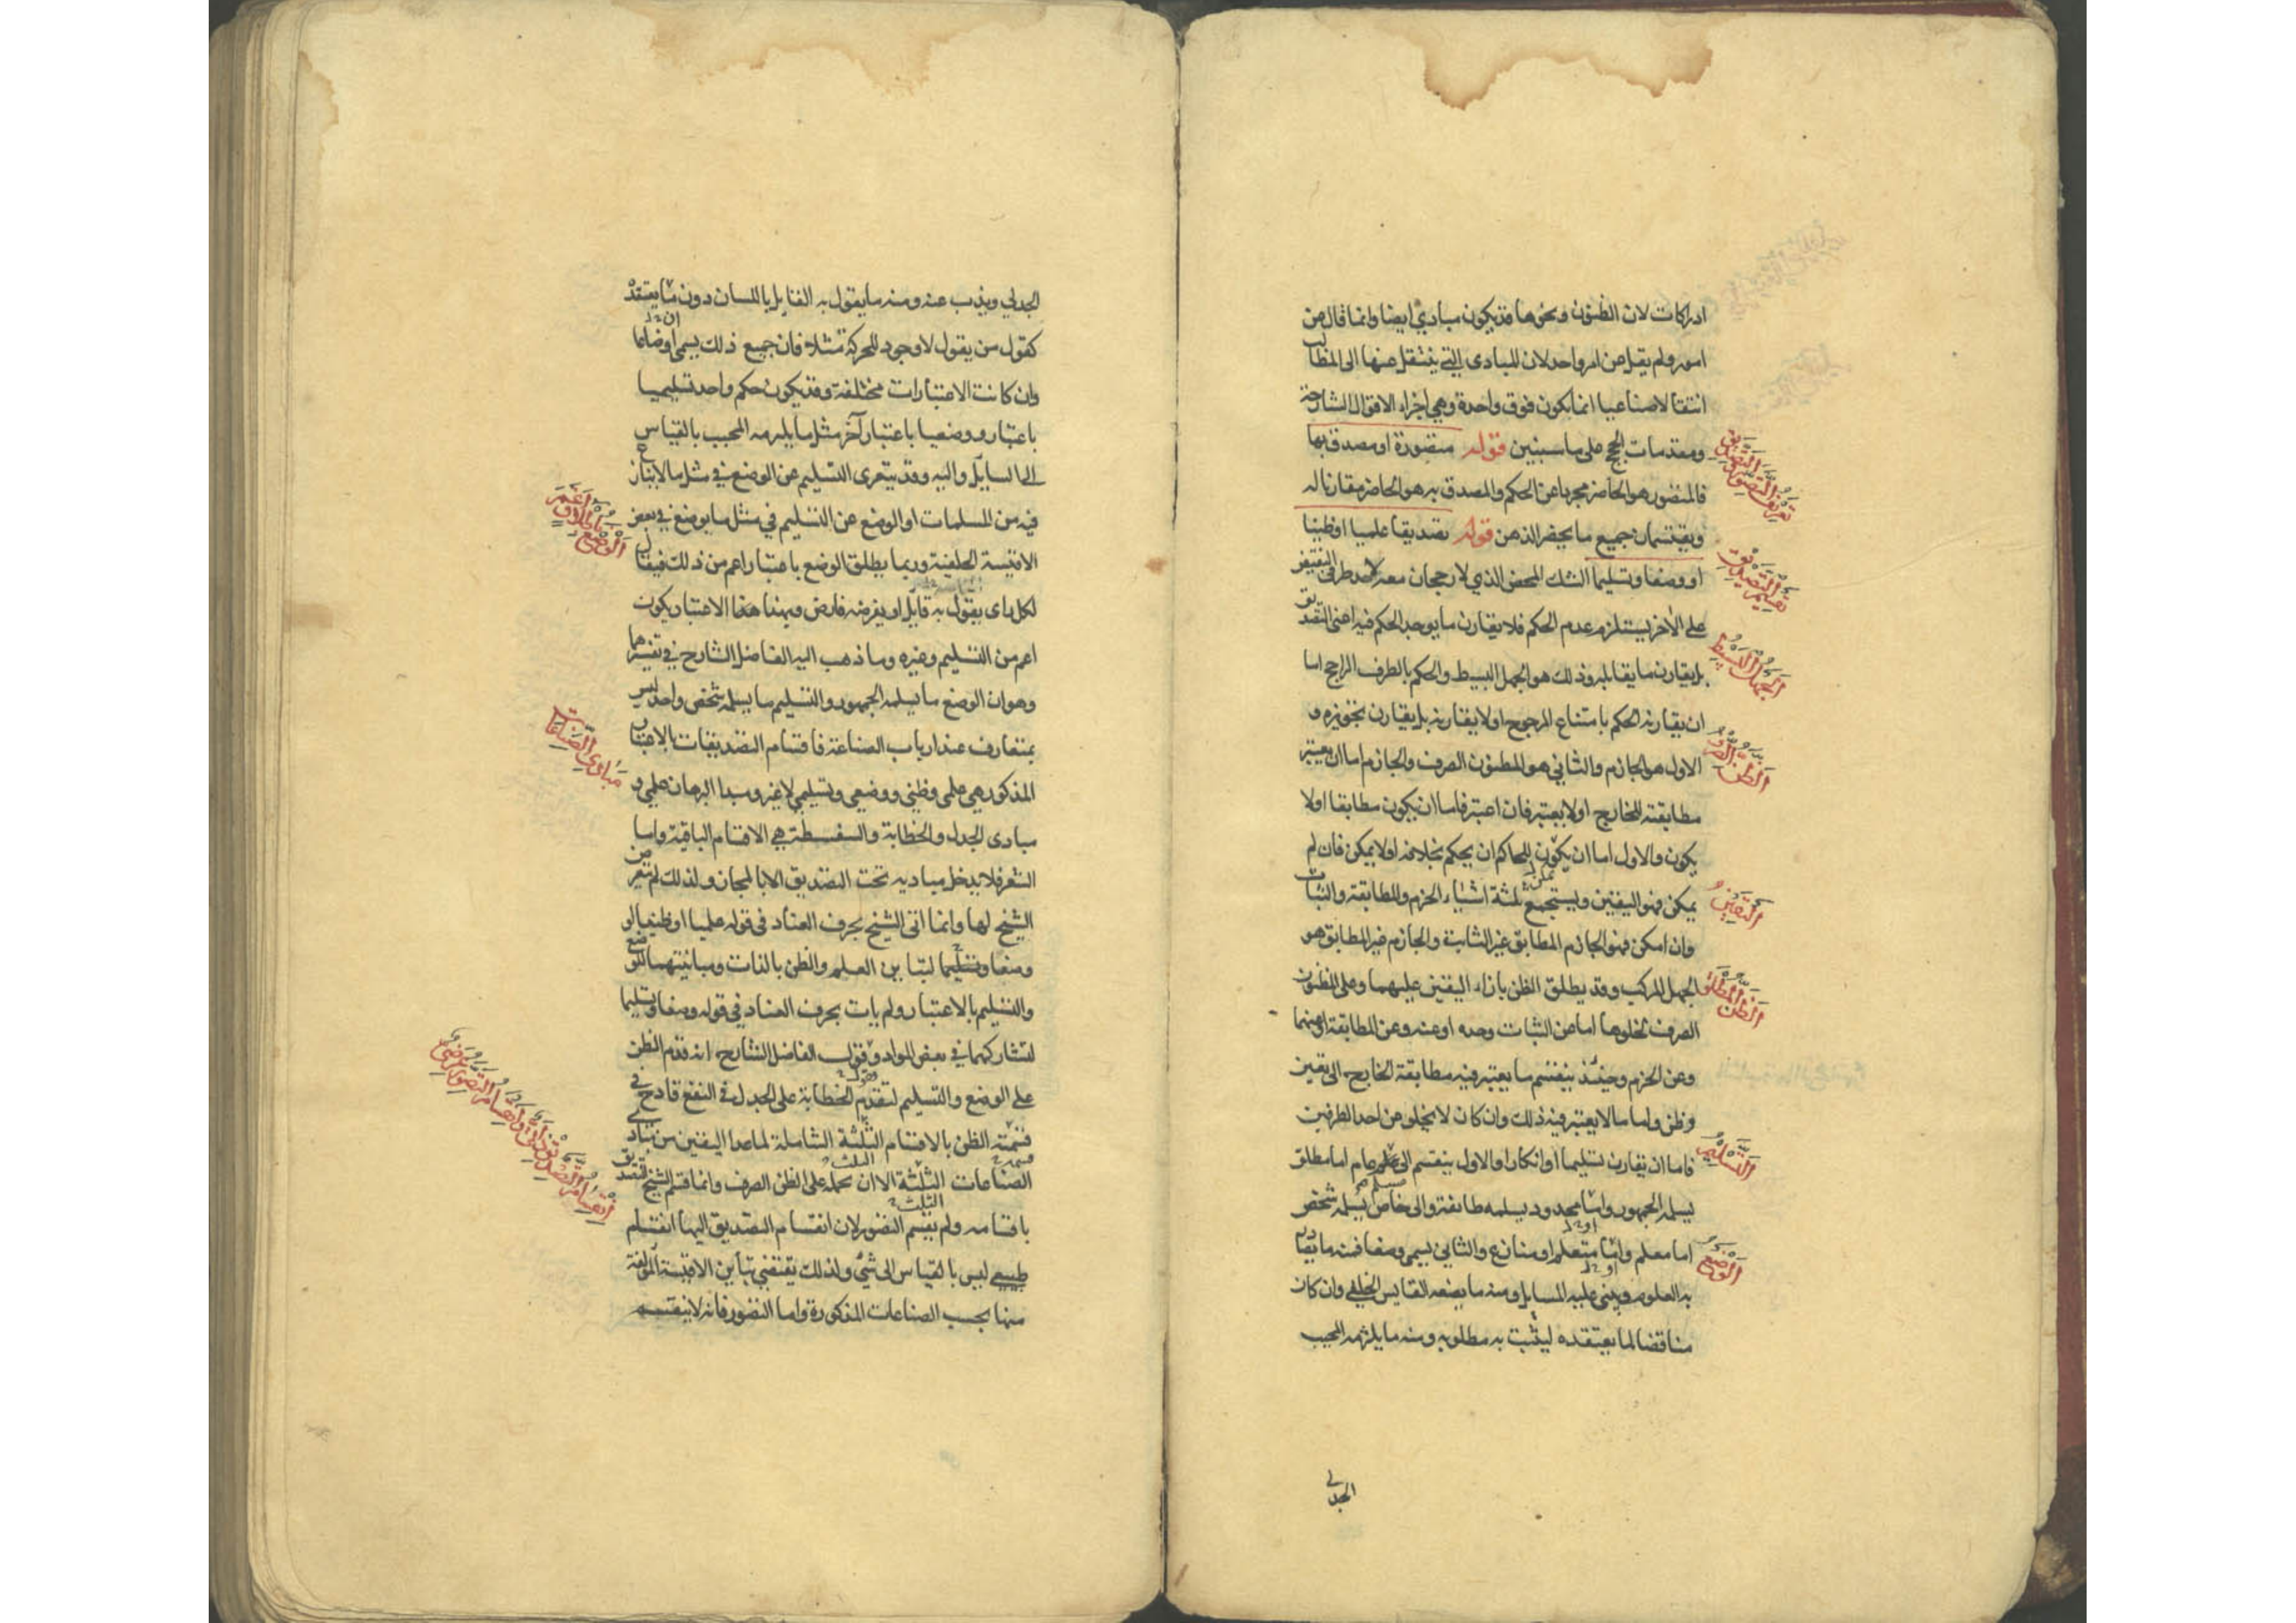 ادراكات لان الظنون ونحوها قد يكون مبادي ايضا وانما قال عن
امور ولم يقل عن امر واحد لان المبادى التي ينتقل عنها الى المطالب
انتقالا صناعيا انما يكون فوق واحدة وهي اجزاء الاقوال الشارحة
ومقدمات الحجج على ما سنبين قوله متصورة او مصدق بها
فالمتصور هو الحاضر مجردا عن الحكم والمصدق به هو الحاضر مقارنا له
ويقتسمان جميع ما يحضر الذهن قوله تصديقا علميا او ظنيا
او وضعا وتسليما الشك المحض الذي لا رجحان معه لاحد طرفي النقيض
على الآخر يستلزم عدم الحكم فلا يقارن ما يوجد الحكم فيه اعنى التصديق
بل يقارن ما يقابله وذلك هو الجهل البسيط والحكم بالطرف الراجح اما
ان يقارنه الحكم بامتناع المرجوح او لا يقارنه بل يقارن تجويزه و
الاول هو الجازم والثاني هو المظنون الصرف والجازم اما ان يعتبر
مطابقته للخارج او لا يعتبر فان اعتبر فاما ان يكون مطابقا او لا
يكون والاول اما ان يكون للحاكم ان يحكم بخلافه او لا يمكن فان لم
يمكن فهو اليقين ويستجمع ثلثة اشياء الجزم والمطابقة والثبات
وان امكن فهو الجازم المطابق غير الثابت والجازم غير المطابق هو
الجهل المركب وقد يطلق الظن بازاء اليقين عليهما وعلى المظنون
الصرف لخلوها اما عن الثبات وحده او عنه وعن المطابقة او عنهما
وعن الجزم وحينئذ ينقسم ما يعتبر فيه مطابقة الخارج الى يقين
وظن واما ما لا يعتبر فيه ذلك وان كان لا يخلو من احد الطرفين
فاما ان يقارن تسليما او انكارا والاول ينقسم الى مسلم عام اما مطلق
يسلمه الجمهور واما محدود يسلمه طائفة والى خاص يسلمه شخص
اما معلم واما متعلم او منازع والثاني يسمى وضعا فمنه ما يصادر
به العلوم ويبنى عليه المسايل ومنه ما يضعه القايس الخلفي وان كان
مناقضا لما يعتقده ليثبت به مطلوبه ومنه ما يلتزمه المجيب
الجدلي
تعريف التصور والتصديق
تقسيم التصديق
الجهل البسيط
الظن الصرف
اليقين
الظن المطلق
التسليم
الوضع
الجدلي ويذب عنه ومنه ما يقول به القايل باللسان دون ان يعتقد
كقول من يقول لا وجود للحركة مثلا فان جميع ذلك يسمى اوضاعا
وان كانت الاعتبارات مختلفة وقد يكون حكم واحد تسليميا
باعتبار ووضعيا باعتبار آخر مثل ما يلتزمه المجيب بالقياس
الى السايل واليه وقد يتعرى التسليم عن الوضع في مثل ما لا ينازع
فيه من المسلمات او الوضع عن التسليم في مثل ما يوضع في بعض
الاقيسة الخلفية وربما يطلق الوضع باعتبار اعم من ذلك فيقال
لكل راى يقول به قايل او يفرضه فارض وبهذا الاعتبار يكون
اعم من التسليم وغيره وما ذهب اليه الفاضل الشارح في تفسيرهما
وهو ان الوضع ما يسلمه الجمهور والتسليم ما يسلمه شخص واحد ليس
بمتعارف عند ارباب الصناعة فاقسام التصديقات بالاعتبار
المذكور هي علمي وظني ووضعي وتسليمي لا غير ومبدا البرهان علمي و
مبادى الجدل والخطابة والسفسطة هي الاقسام الباقية واما
الشعر فلا يدخل مباديه تحت التصديق الا بالمجاز ولذلك لم يتعرض
الشيخ لها وانما اتى الشيخ بحرف العناد في قوله علميا او ظنيا او
وضعا وتسليما لتباين العلم والظن بالذات ومباينتهما للوضع
والتسليم بالاعتبار ولم يات بحرف العناد في قوله وضعا وتسليما
لتشاركهما في بعض المواد وقول الفاضل الشارح انه قدم الظن
على الوضع والتسليم لتقدم الخطابة على الجدل في النفع قادح في
قسمته الظن بالاقسام الثلثة الشاملة لما عدا اليقين من مبادى
الصناعات الثلثة الا ان يحمله على الظن الصرف وانما قسم الشيخ التصديق
باقسامه ولم يقسم التصور لان انقسام التصديق اليها انقسام
طبيعي ليس بالقياس الى شئ ولذلك يقتضي تباين الاقيسة المؤلفة
منها بحسب الصناعات المذكورة واما التصور فانه لا ينقسم
الوضع باطلاق اعم
مبادي الصناعات
انقسام التصديق ذاتي وانقسام التصور عرضي